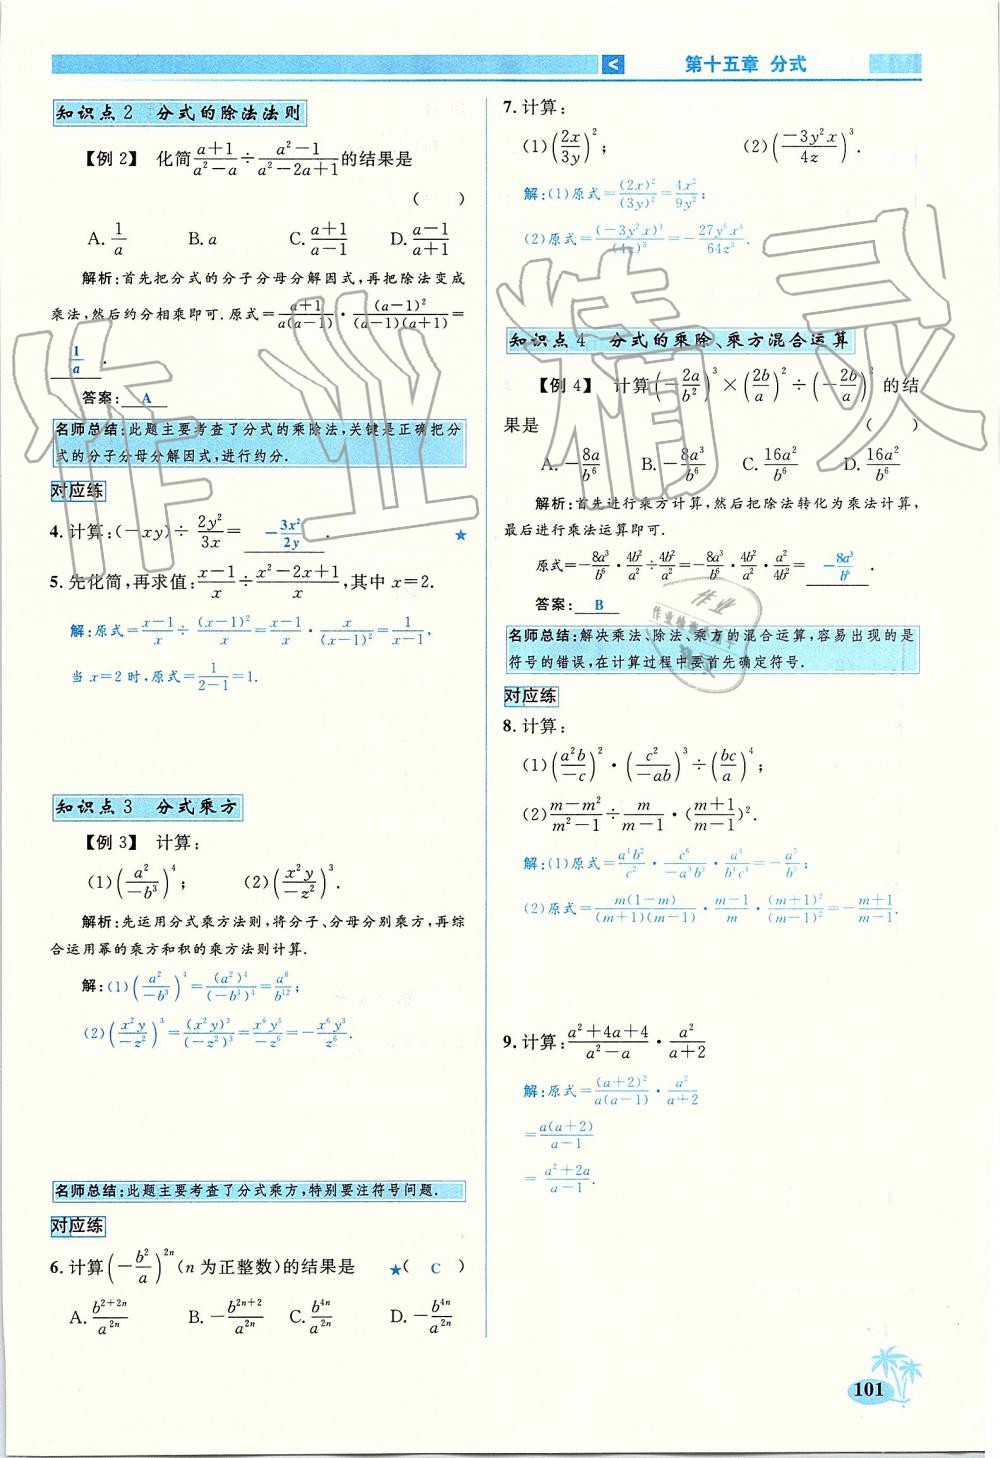 第十五章 分式
知识点2 分式的除法法则
【例2】 化简(a+1)/(a²-a)÷(a²-1)/(a²-2a+1)的结果是
( )
A. 1/a B. a C. (a+1)/(a-1) D. (a-1)/(a+1)
解析:首先把分式的分子分母分解因式,再把除法变成
乘法,然后约分相乘即可.原式=(a+1)/(a(a-1))·(a-1)²/((a-1)(a+1))=
1/a.
答案: A
名师总结:此题主要考查了分式的乘除法,关键是正确把分
式的分子分母分解因式,进行约分.
对应练
4.计算:(-xy)÷2y²/3x= -3x²/2y . ★
5.先化简,再求值:(x-1)/x÷(x²-2x+1)/x,其中x=2.
解:原式=(x-1)/x÷(x-1)²/x=(x-1)/x·x/(x-1)²=1/(x-1),
当x=2时,原式=1/(2-1)=1.
知识点3 分式乘方
【例3】 计算:
(1)(a²/-b³)⁴; (2)(x²y/-z²)³.
解析:先运用分式乘方法则,将分子、分母分别乘方,再综
合运用幂的乘方和积的乘方法则计算.
解:(1)(a²/-b³)⁴=(a²)⁴/(-b³)⁴=a⁸/b¹²;
(2)(x²y/-z²)³=(x²y)³/(-z²)³=x⁶y³/-z⁶=-x⁶y³/z⁶.
名师总结:此题主要考查了分式乘方,特别要注符号问题.
对应练
6.计算(-b²/a)²ⁿ(n为正整数)的结果是 ★( C )
A. b²⁺²ⁿ/a²ⁿ B. -b²ⁿ⁺²/a²ⁿ C. b⁴ⁿ/a²ⁿ D. -b⁴ⁿ/a²ⁿ
7.计算:
(1)(2x/3y)²; (2)(-3y²x/4z)³.
解:(1)原式=(2x)²/(3y)²=4x²/9y²;
(2)原式=(-3y²x)³/(4z)³=-27y⁶x³/64z³.
知识点4 分式的乘除、乘方混合运算
【例4】 计算(-2a/b²)³×(2b/a)²÷(-2b/a)²的结
果是 ( )
A. -8a/b⁶ B. -8a³/b⁶ C. 16a²/b⁶ D. 16a²/b⁶
解析:首先进行乘方计算,然后把除法转化为乘法计算,
最后进行乘法运算即可.
原式=-8a³/b⁶·4b²/a²÷4b²/a²=-8a³/b⁶·4b²/a²·a²/4b²= -8a³/b⁶ .
答案: B
名师总结:解决乘法、除法、乘方的混合运算,容易出现的是
符号的错误,在计算过程中要首先确定符号.
对应练
8.计算:
(1)(a²b/-c)²·(c²/-ab)³÷(bc/a)⁴;
(2)(m-m²)/(m²-1)÷m/(m-1)·((m+1)/(m-1))².
解:(1)原式=a⁴b²/c²·c⁶/-a³b³·a⁴/b⁴c⁴=-a⁵/b⁵;
(2)原式=m(1-m)/((m+1)(m-1))·(m-1)/m·(m+1)²/(m-1)²=-(m+1)/(m-1).
9.计算:(a²+4a+4)/(a²-a)·a²/(a+2)
解:原式=(a+2)²/(a(a-1))·a²/(a+2)
=a(a+2)/(a-1)
=(a²+2a)/(a-1).
101
作业精灵